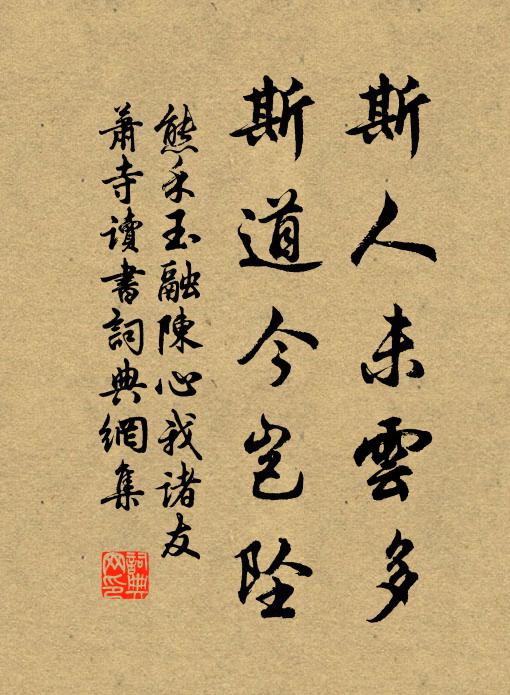 斯人未雲多
斯道今岂坠
熊禾玉融陳心我诸友
蕭寺讀書詞典網集
詞典
網印